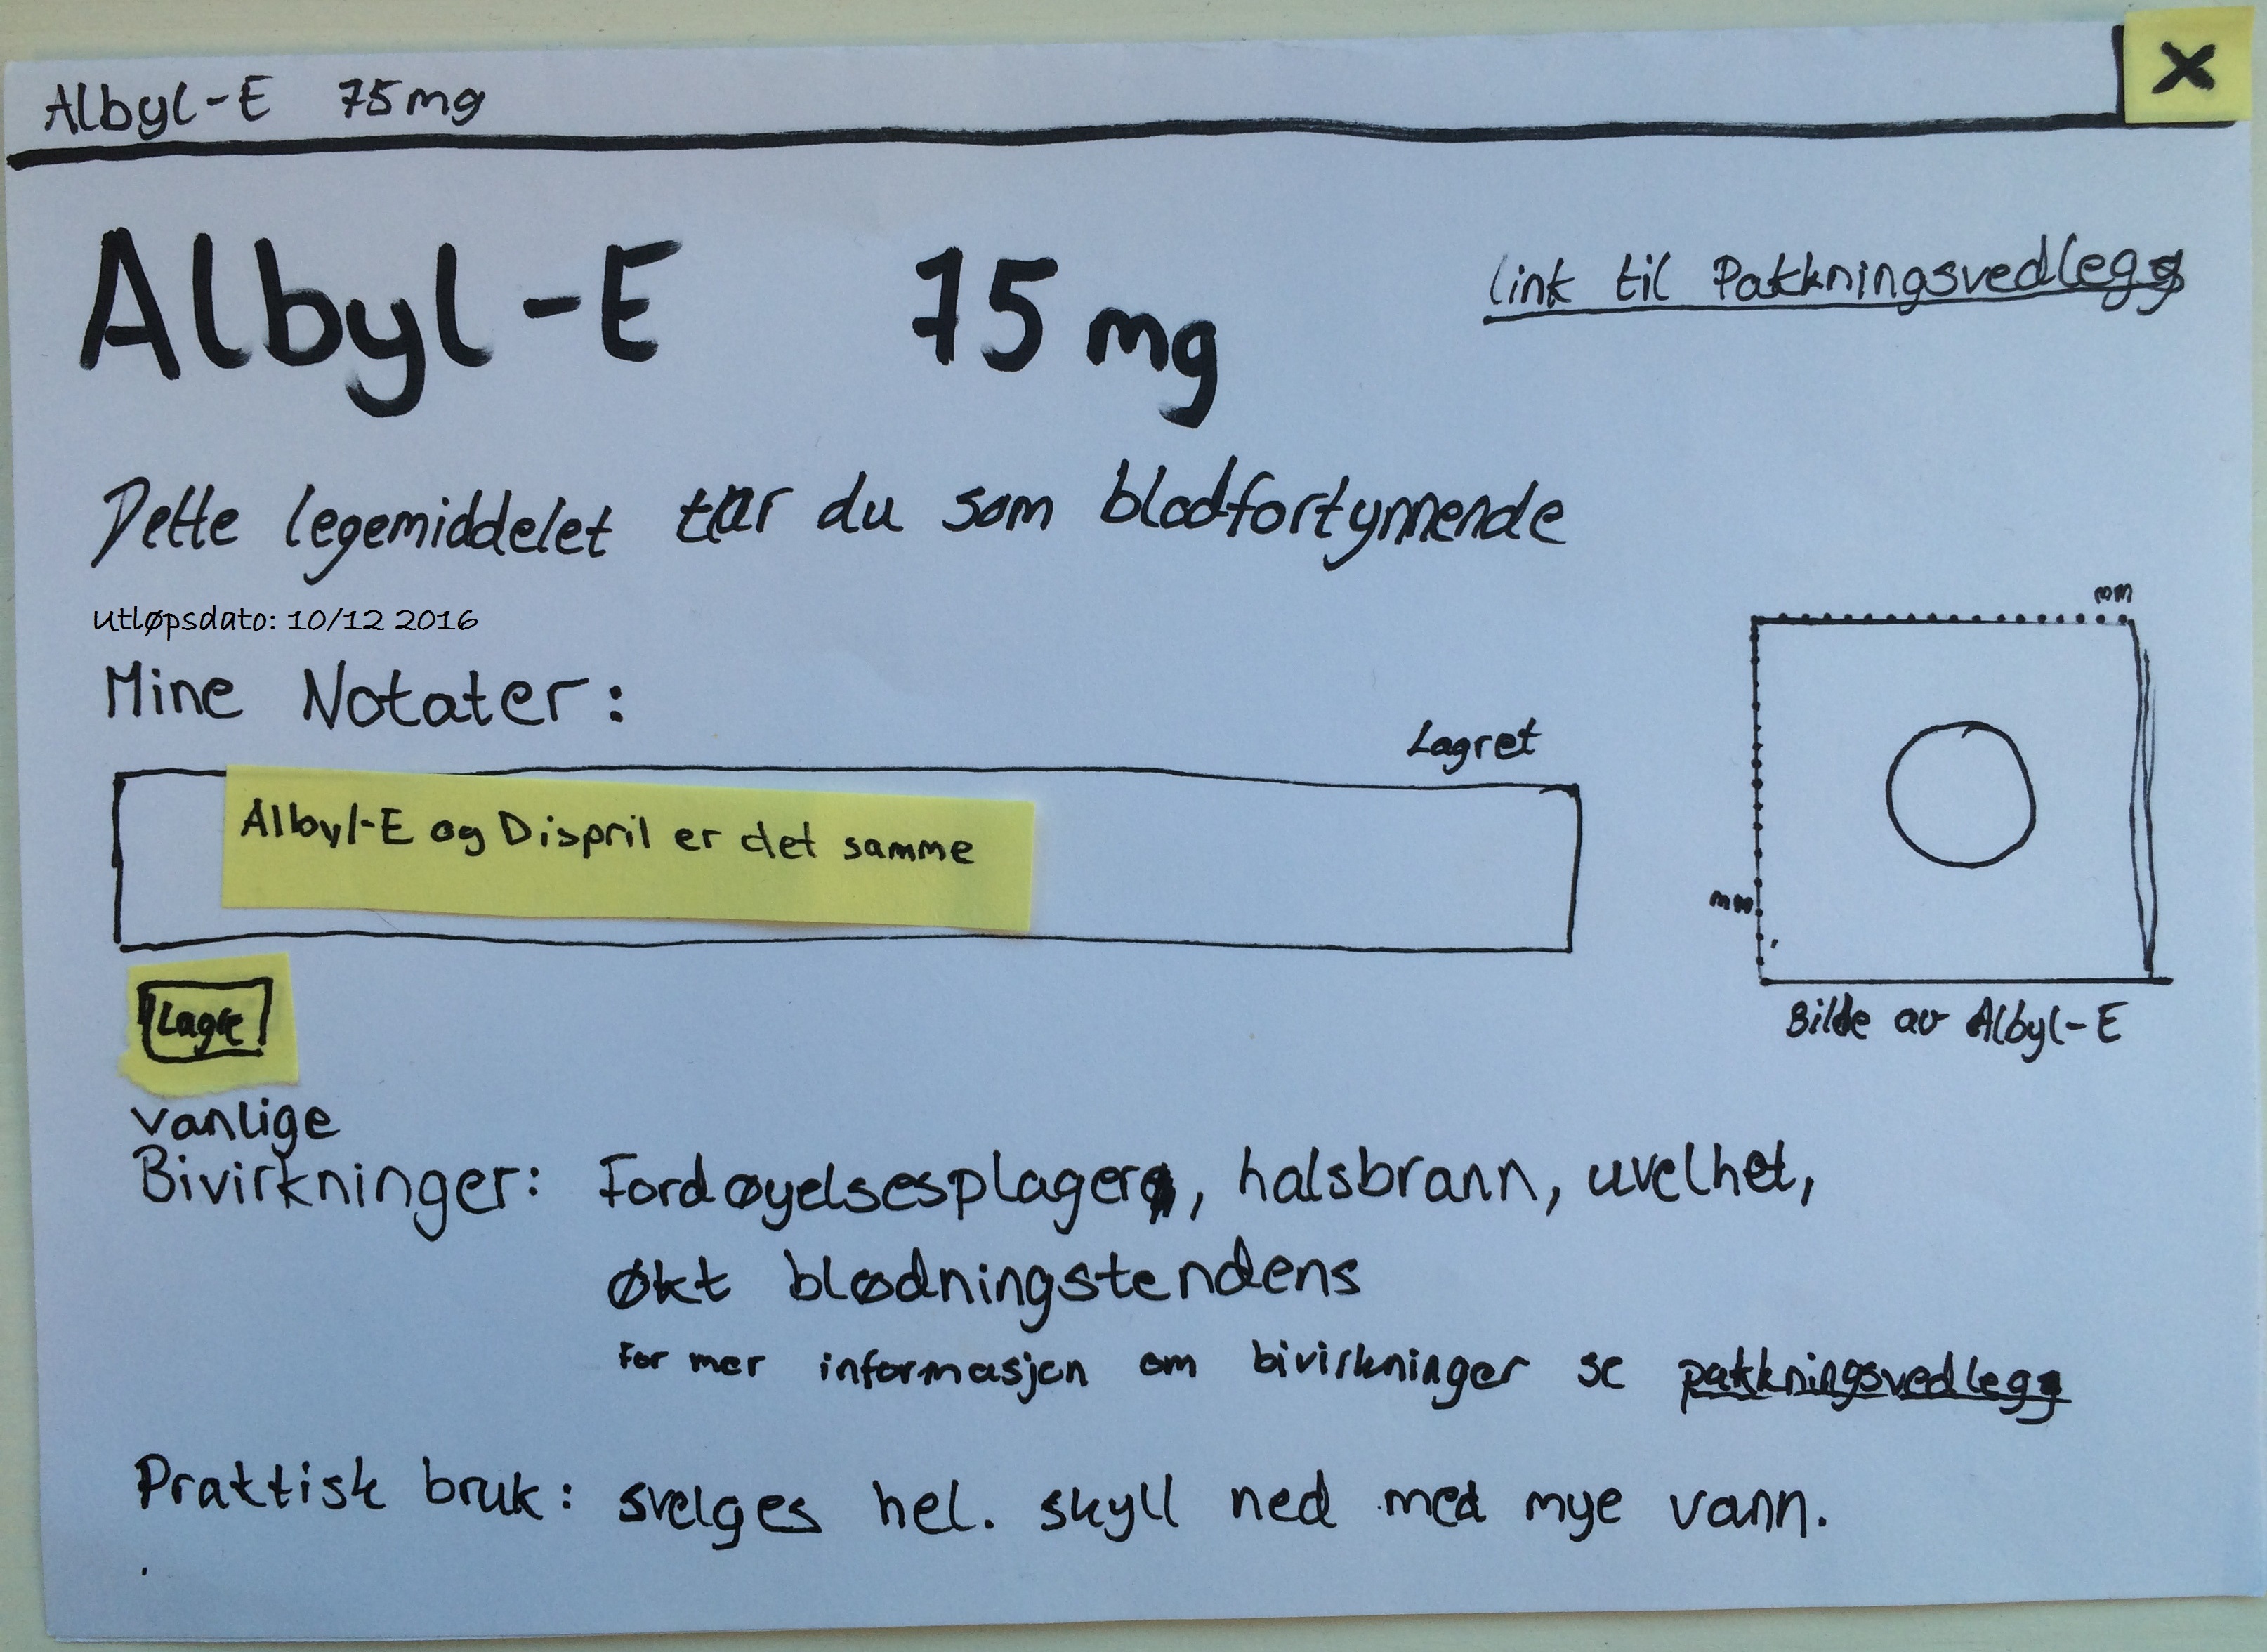 Albyl-E 75mg
X
Albyl-E 75 mg
link til Pakkningsvedlegg
Dette legemiddelet tar du som blodfortynnende
Utløpsdato: 10/12 2016
mm
Mine Notater:
Lagret
Albyl-E og Dispril er det samme
mm
Lagre
Bilde av Albyl-E
vanlige
Bivirkninger: Fordøyelsesplager, halsbrann, uvelhet,
økt blødningstendens
For mer informasjon om bivirkninger se pakkningsvedlegg
Praktisk bruk: svelges hel. skyll ned med mye vann.